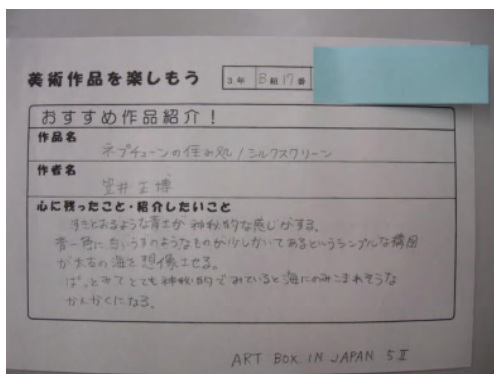 美術作品を楽しもう 3年 B組 17番
おすすめ作品紹介！
作品名
ネプチューンの住み処/シルクスクリーン
作者名
笠井正博
心に残ったこと・紹介したいこと
すきとおるような青さが神秘的な感じがする。
青一色に白いうずのようなものが少しかいてあるというシンプルな構図
が太古の海を想像させる。
ぱっとみてとても神秘的でみていると海にのみこまれそうな
かんかくになる。
ART BOX IN JAPAN 5 II